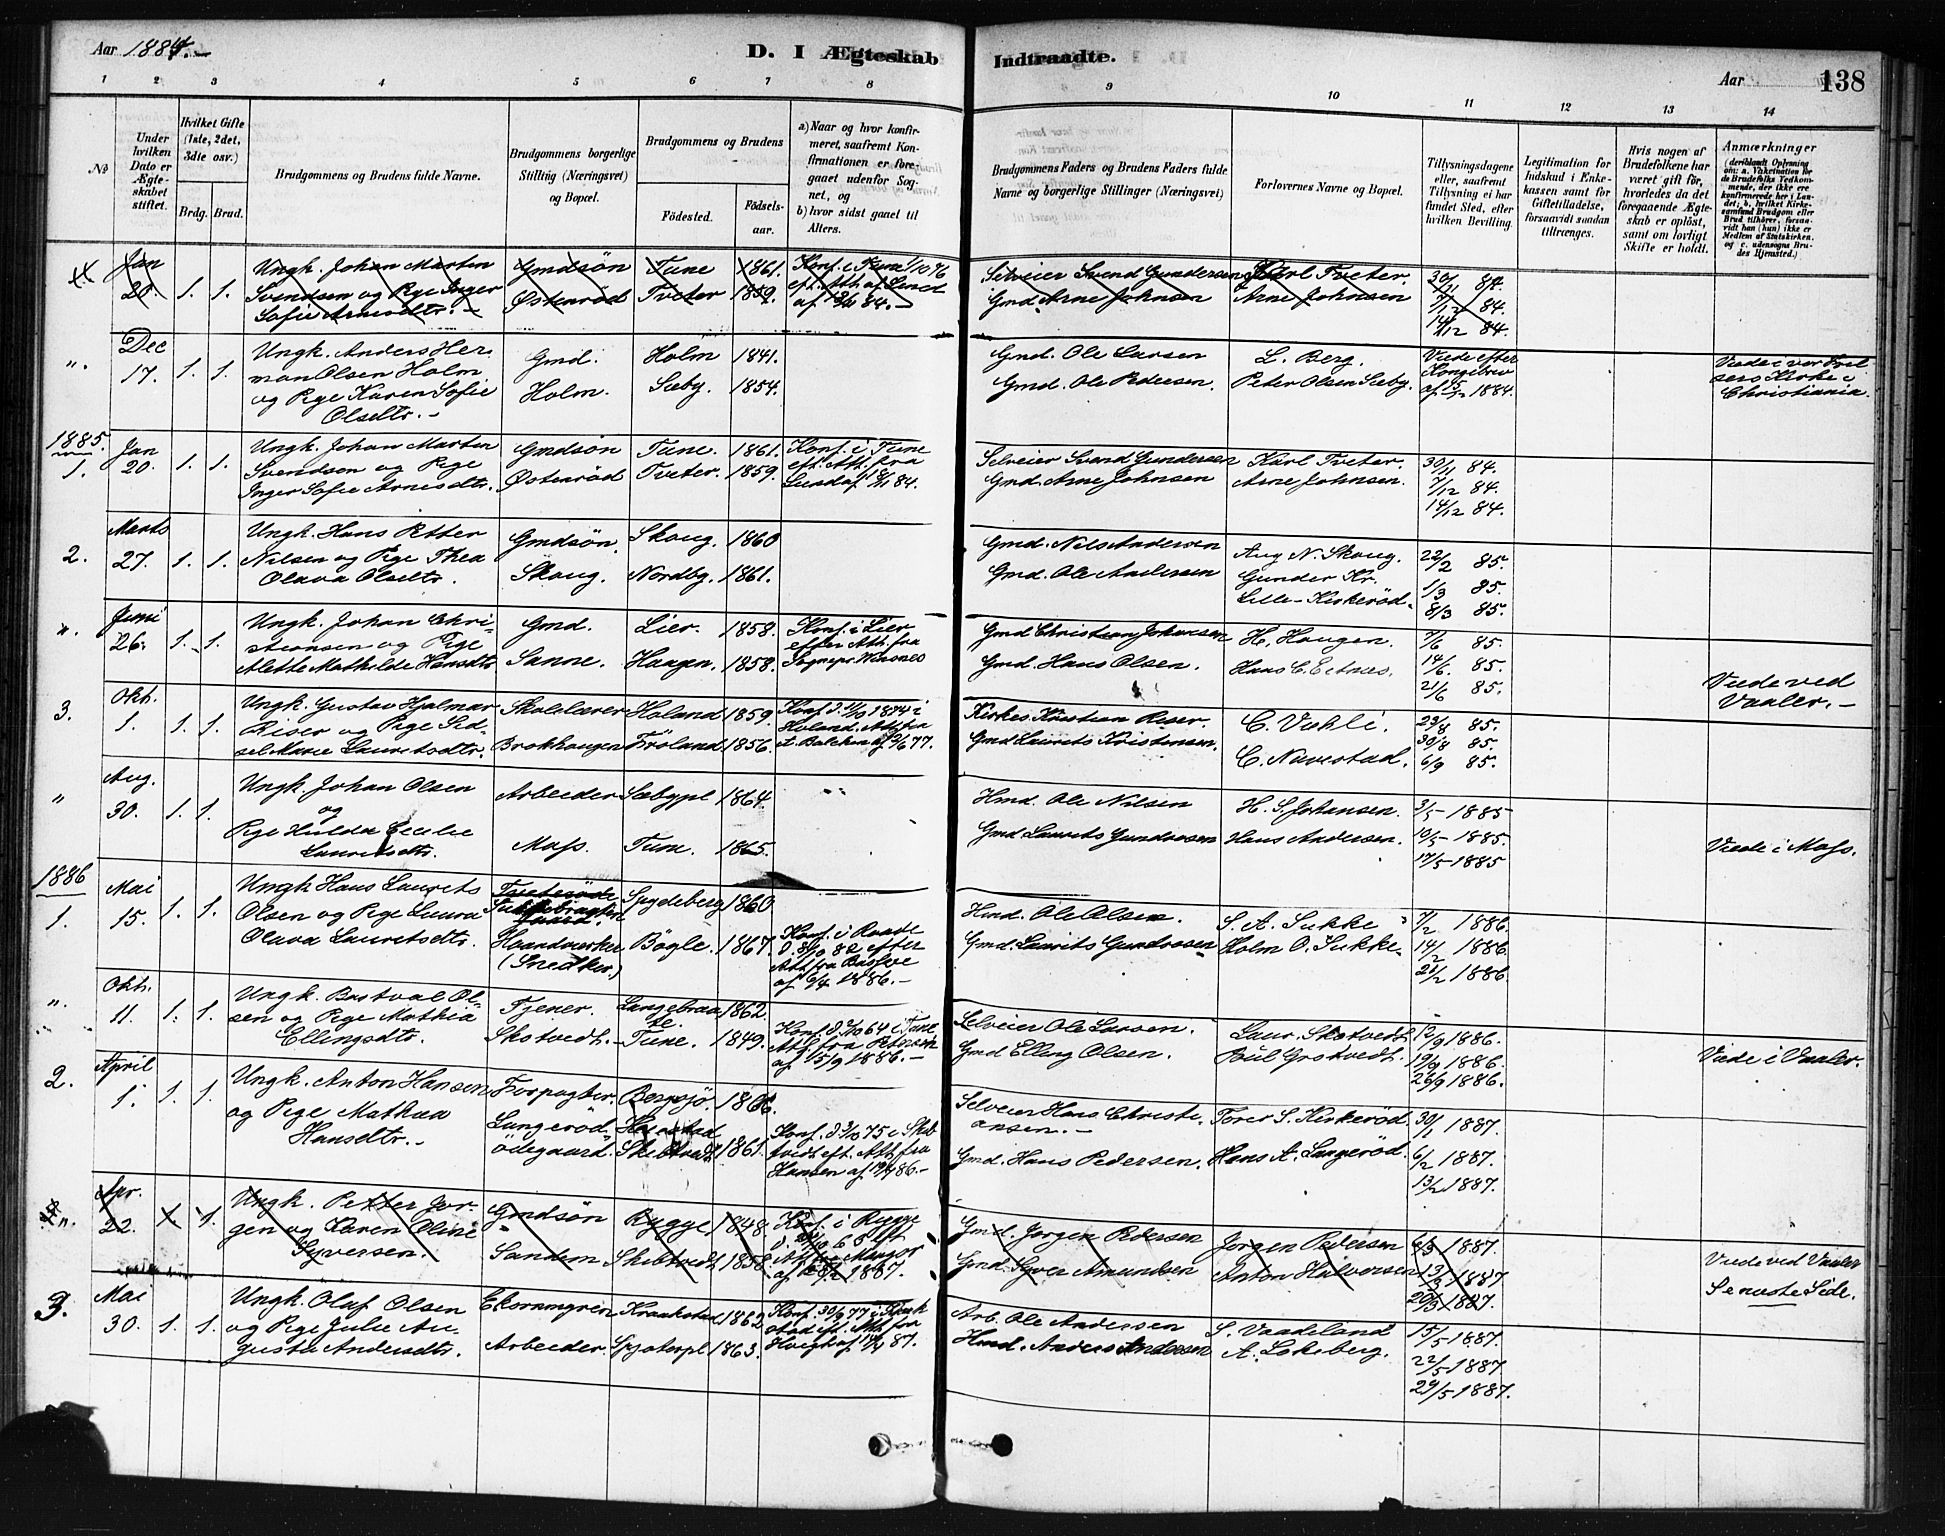 Aar 1884.-
D. I Ægteskab Indtraadte.
Aar 138
1 2 3 4 5 6 7 8 9 10 11 12 13 14
No
Under hvilken Dato er Ægteskabet stiftet.
Hvilket Gifte (1ste, 2det, 3die osv.)
Brdg. Brud.
Brudgommens og Brudens fulde Navne.
Brudgommens borgerlige Stilling (Næringsvei) og Bopæl.
Brudgommens og Brudens
Fødested. Fødselsaar.
a) Naar og hvor konfirmeret, saafremt Konfirmationen er foregaaet udenfor Sognet, og
b) hvor sidst gaaet til Alters.
Brudgommens Faders og Brudens Faders fulde Navne og borgerlige Stillinger (Næringsvei)
Forlovernes Navne og Bopæl.
Tillysningsdagene eller, saafremt Tillysning ei har fundet Sted, efter hvilken Bevilling.
Legitimation for Indskud i Enkekassen samt for Giftetilladelse, forsaavidt saadan tiltrænges.
Hvis nogen af Brudefolkene har været gift før, hvorledes da det foregaaende Ægteskab er opløst, samt om lovligt Skifte er holdt.
Anmærkninger
(deriblandt Oplysning om: a. Vaktination for de Brudefolks Vedkommende, der ikke ere konfirmerede her i Landet; b. hvilket Kirkesamfund Brudgom eller Brud tilhører, forsaavidt han (hun) ikke er Medlem af Statskirken, og c. udensogns Brudes Hjemsted.)
Jan 20. 1. 1.
Ungk. Johan Martin
Svendsen og Pge Inger
Sofie Arnesdtr. -
Gmdsøn
Østenrød
Tune 1861.
Tveter 1859.
Konf. i Tune 1/10 76
eft. Att. af Lund
84. -
Selveier Svend Gundersen
Gmd. Arne Johnsen
Karl Tveter.
Arne Johnsen
30/11 84.
7/12 84.
14/12 84.
". Dec 17. 1. 1.
Ungk. Anders Her-
man Olsen Holm
og Pge Karen Sofie
Olsdtr. -
Gmd.
Holm.
Holm 1841.
Sæby. 1854.
Gmd. Ole Larsen
Gmd. Ole Pedersen.
L. Berg.
Peter Olsen Sæby.
Viede efter
Kongebrev
af 15/12 1884.
Viede i vor Frel
sers Kirke i
Christiania.
1885.
1. Jan 20. 1. 1.
Ungk. Johan Martin
Svendsen og Pge
Inger Sofie Arnesdtr.
Gmdsøn
Østenrød
Tune. 1861.
Tveter. 1859.
Konf. i Tune
eft. Att. fra
84.
Selveier Svend Gundersen
Gmd. Arne Johnsen
Karl Tveter.
Arne Johnsen.
30/11 84.
7/12 84.
14/12 84.
2. Marts 27. 1. 1.
Ungk. Hans Petter
Nilsen og Pge Thea
Olava Olsdtr.
Gmdsøn.
Skoug.
Skoug. 1860
Nordby. 1861.
Gmd. Nils Andersen
Gmd. Ole Andersen
Aug N. Skoug.
Gunder Kr.
Lille-Kirkerød.
22/2 85.
1/3 85.
8/3 85.
". Juni 26. 1. 1.
Ungk. Johan Chri-
stiansen og Pge
Alette Mathilde Hansdtr
Gmd.
Sanne.
Lier. 1858.
Haugen. 1858.
Konf. i Lier
efter Att. fra
Sognepr. Winsnes
Gmd Christian Johansen
Gmd. Hans Olsen.
H. Haugen.
Hans C. Eetnes.
7/6 85.
14/6. 85.
21/6 85.
Viede ved
Vaaler. -
3. Okt. 1. 1. 1.
Ungk. Gustav Hjalmar
Riser og Pge Sid-
sel Marie Lauretsdtr.
Skolelærer
Brekhaugen
Høland 1859.
Frøland 1856.
Konf. d. 4/10 1874 i
Høland. Att. fra
Kirkes. Kristian Riser.
Gmd Laurits Kristensen.
C. Vahli.
C. Navestad.
23/8 85.
30/8 85.
6/9 85.
" Aug. 30. 1. 1.
Ungk. Johan Olsen
og
Pge Hulda Cecilie
Lauretsdtr.
Arbeider
Moss.
Sæbypl 1864.
Tune. 1865.
Hmd. Ole Nilsen
Gmd. Laurets Gundersen
H. S. Johansen.
Hans Andersen.
3/5 - 1885
10/5 - 1885.
17/5 - 1885
Viede i Moss.
1886
1. Mai 15. 1. 1.
Ungk Hans Laurets
Olsen og Pge Laura
Olava Lauretsdtr.
Haandverker
(Snedker)
Spydeberg 1860
Bøgle. 1867.
Konf. i Raade
82 efter
Att. fra
af 6/4 1886. -
Hmd. Ole Olsen.
Gmd. Laurits Gundersen
S. A. Sukke
Holm O. Sukke.
7/2 1886.
14/2 1886.
21/2 1886.
". Okt. 11. 1. 1.
Ungk. Bastval Ol-
sen og Pge Mathia
Ellingsdtr.
Tjener.
Skotvedt.
Langebraa 1862.
Tune. 1849.
Konf. d. 2/10 64 i Tune
Att. fra Petersen
af 15/9 1886. -
Selveier Ole Larsen.
Gmd Elling Olsen.
Laur. Skotvedt
12/9 1886.
19/9 1886.
26/9 1886.
Viede i Vaaler.
2. April 1. 1. 1.
Ungk. Anton Hansen
og Pge Mathea
Hansdtr. -
Forpagter.
Langerød-
ødegaard.
Bergsjø. 1866.
Skibtvedt 1861.
Konf. d. 3/10 75 i Skib
tvedt eft. Att. fra
Hansen af 19/4 86. -
Selveier Hans Christi
ansen. -
Gmd. Hans Pedersen.
Torer S. Kirkerød.
Hans A. Langerød.
30/1 1887.
6/2 1887.
13/2 1887.
". Apr. 22. 1.
Ungk. Petter Jør-
gen og Karen Oline
Syversen.
Gmdsøn
Sandem
Rygge 1848.
Skibtvedt 1858
Konf. i Rygge
1887.
Gmd. Jørgen Pedersen
Gmd. Syver Amundsen
Jørgen Pedersen
Anton Halvorsen
6/3 1887.
13/3 1887
20/3 1887.
Viede ved Vaaler
Se næste Side.
3. Mai 30. 1. 1.
Ungk. Olaf Olsen
og Pge Julie Au-
gusta Andersdtr.
Ekornmyren
Arbeider.
Kraakstad 1862
1863.
Konf. 30/9 77 i Kraak
stad eft. Att. fra
87.
Arb. Ole Andersen
Hmd. Anders Andersen
S. Vaadeland
A. Løkeberg.
15/5 1887.
22/5 1887
29/5 1887.